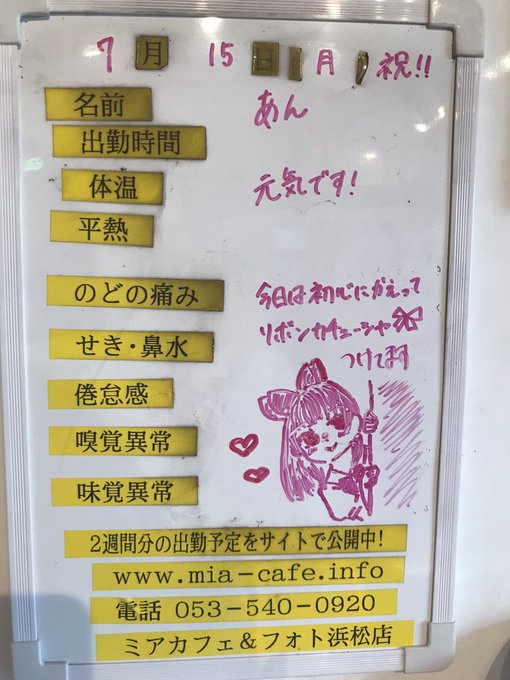 7月 15日(月)祝!!
名前 あん
出勤時間
体温 元気です!
平熱
のどの痛み
今日は初心にかえって
リボンカチューシャ
つけてます
せき・鼻水
倦怠感
嗅覚異常
味覚異常
2週間分の出勤予定をサイトで公開中!
www.mia-cafe.info
電話 053-540-0920
ミアカフェ&フォト浜松店